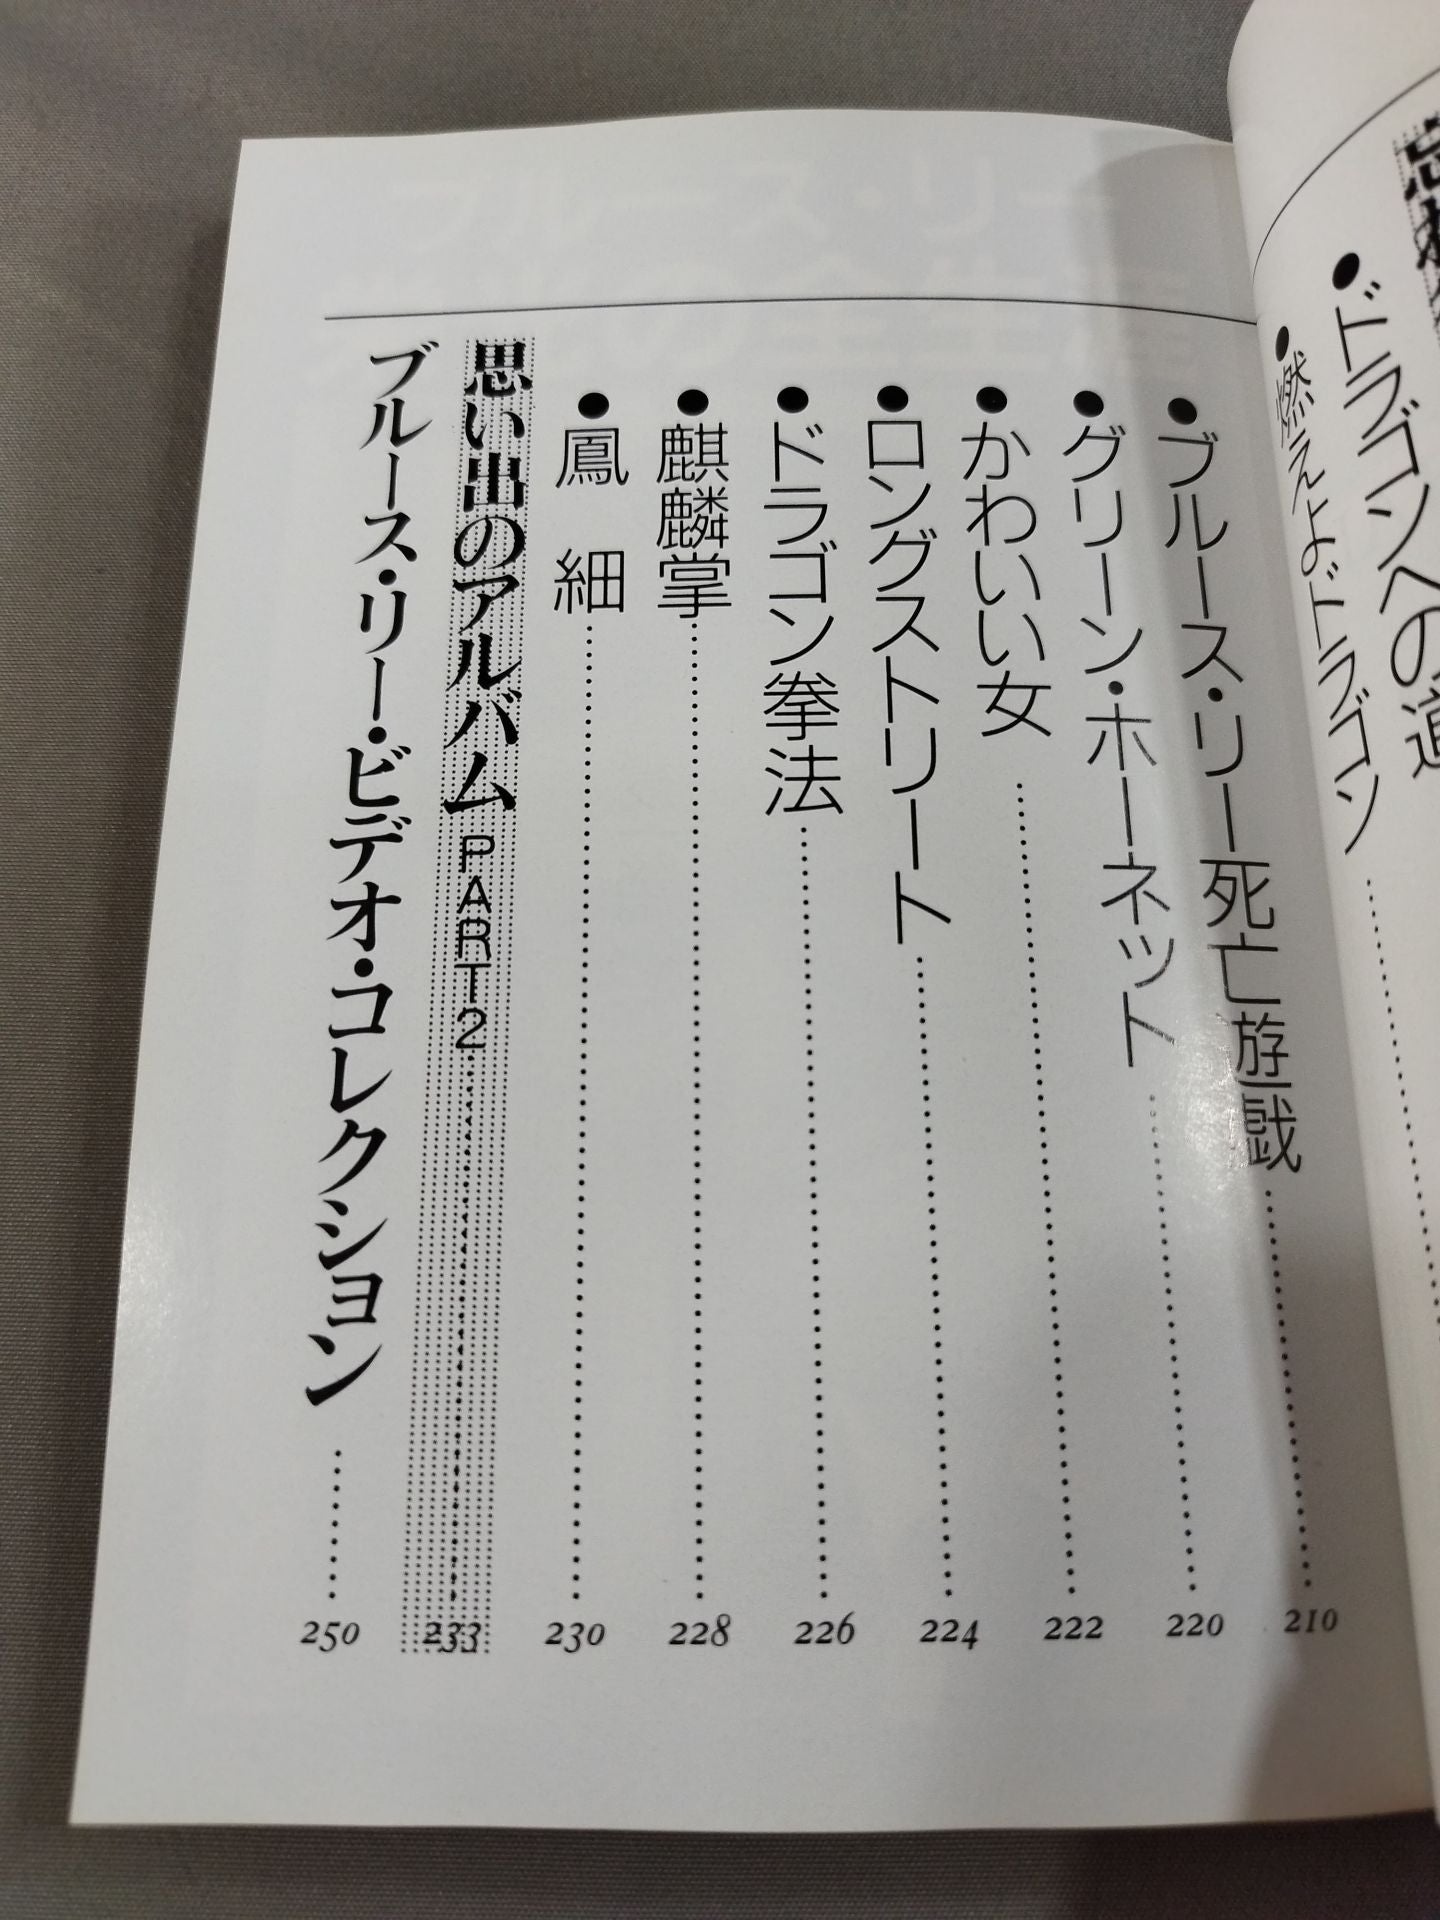 ●ドラゴンへの道
●燃えよドラゴン
●ブルース・リー死亡遊戯 210
●グリーン・ホーネット 220
●かわいい女 222
●ロングストリート 224
●ドラゴン拳法 226
●麒麟掌 228
●鳳 細 230
思い出のアルバム PART2 233
ブルース・リー・ビデオ・コレクション 250